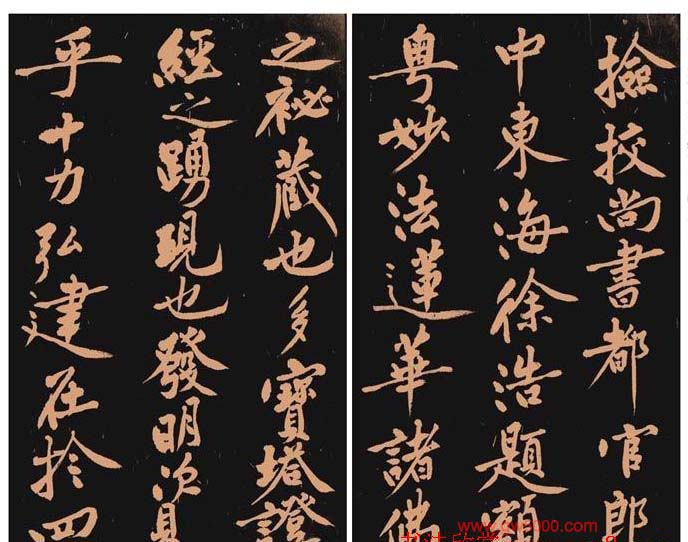 撿挍尚書都官郎
中東海徐浩題額
粤妙法蓮華諸佛
之祕藏也多寶塔證
經之踴現也發明次
乎十力弘建在於四